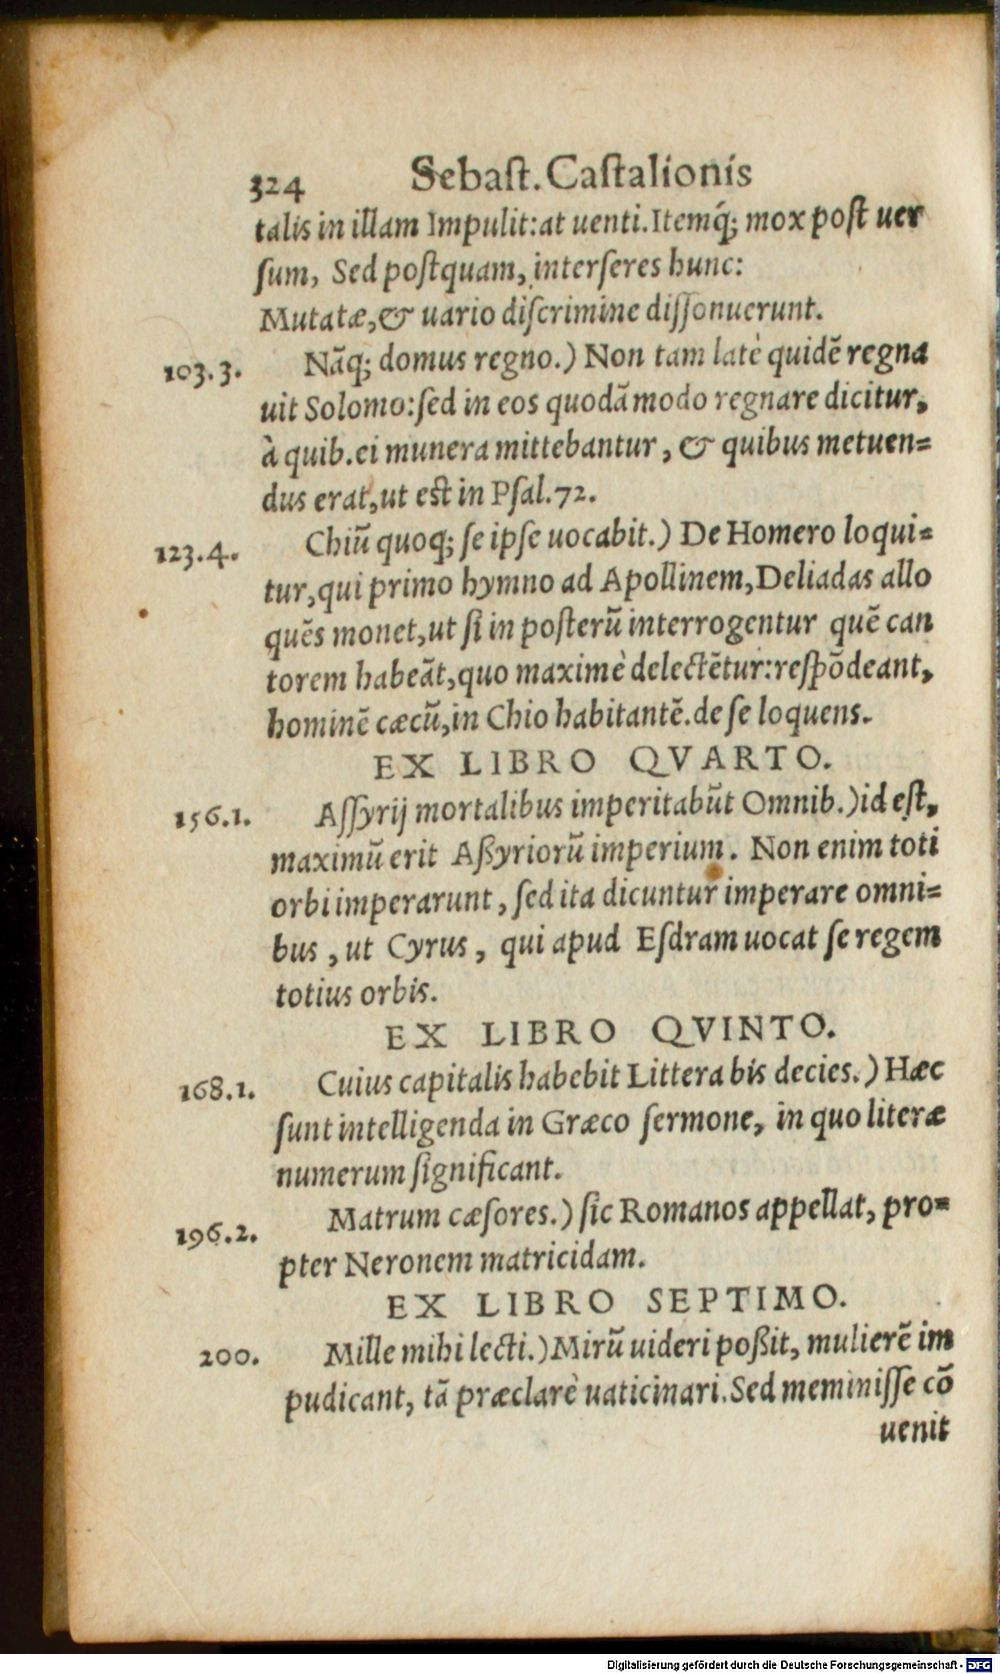 324 Sebaſt. Caſtalionis
talis in illam Impulit: at uenti. Itemq́; mox poſt uer
ſum, Sed poſtquam, interſeres hunc:
Mutatæ, & uario diſcrimine diſſonuerunt.
103.3. Nãq; domus regno.) Non tam latè quidẽ regna
uit Solomo: ſed in eos quodãmodo regnare dicitur,
à quib. ei munera mittebantur, & quibus metuen=
dus erat, ut eſt in Pſal. 72.
123.4. Chiũ quoq; ſe ipſe uocabit.) De Homero loqui=
tur, qui primo hymno ad Apollinem, Deliadas allo
quẽs monet, ut ſi in poſterũ interrogentur quẽ can
torem habeãt, quo maximè delectẽtur: reſpõdeant,
hominẽ cæcũ, in Chio habitantẽ. de ſe loquens.
EX LIBRO QVARTO.
156.1. Aſſyrij mortalibus imperitabũt Omnib.) id eſt,
maximũ erit Aßyriorũ imperium. Non enim toti
orbi imperarunt, ſed ita dicuntur imperare omni=
bus, ut Cyrus, qui apud Eſdram uocat ſe regem
totius orbis.
EX LIBRO QVINTO.
168.1. Cuius capitalis habebit Littera bis decies.) Hæc
ſunt intelligenda in Græco ſermone, in quo literæ
numerum ſignificant.
196.2. Matrum cæſores.) ſic Romanos appellat, pro=
pter Neronem matricidam.
EX LIBRO SEPTIMO.
200. Mille mihi lecti.) Mirũ uideri poßit, mulierẽ im
pudicant, tã præclarè uaticinari. Sed meminiſſe cõ
uenit
Digitalisierung gefördert durch die Deutsche Forschungsgemeinschaft - DFG